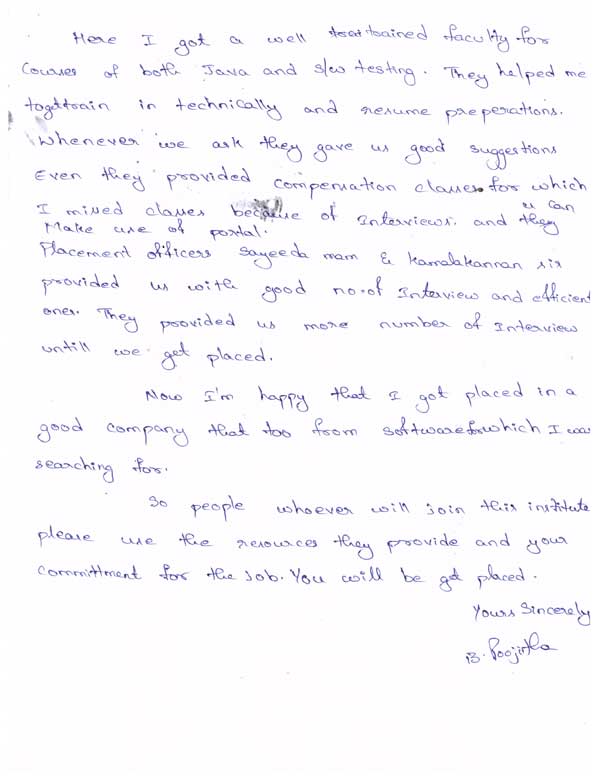 Here I got a well trained faculty for
Courses of both Java and s/w testing. They helped me
togettrain in technically and resume preperations.
Whenever we ask they gave us good suggestions
Even they provided compensation classes for which
I missed classes because of Interviews. and they u can
Make use of portal.
Placement officers Sayeeda mam & Kamalakannan sir
provided us with good no.of Interview and efficient
ones. They provided us more number of Interview
untill we get placed.
Now I'm happy that I got placed in a
good company that too from software for which I was
searching for.
So people whoever will join this institute
please use the resources they provide and your
committment for the Job. You will be get placed.
Yours Sincerely
B. Poojitha